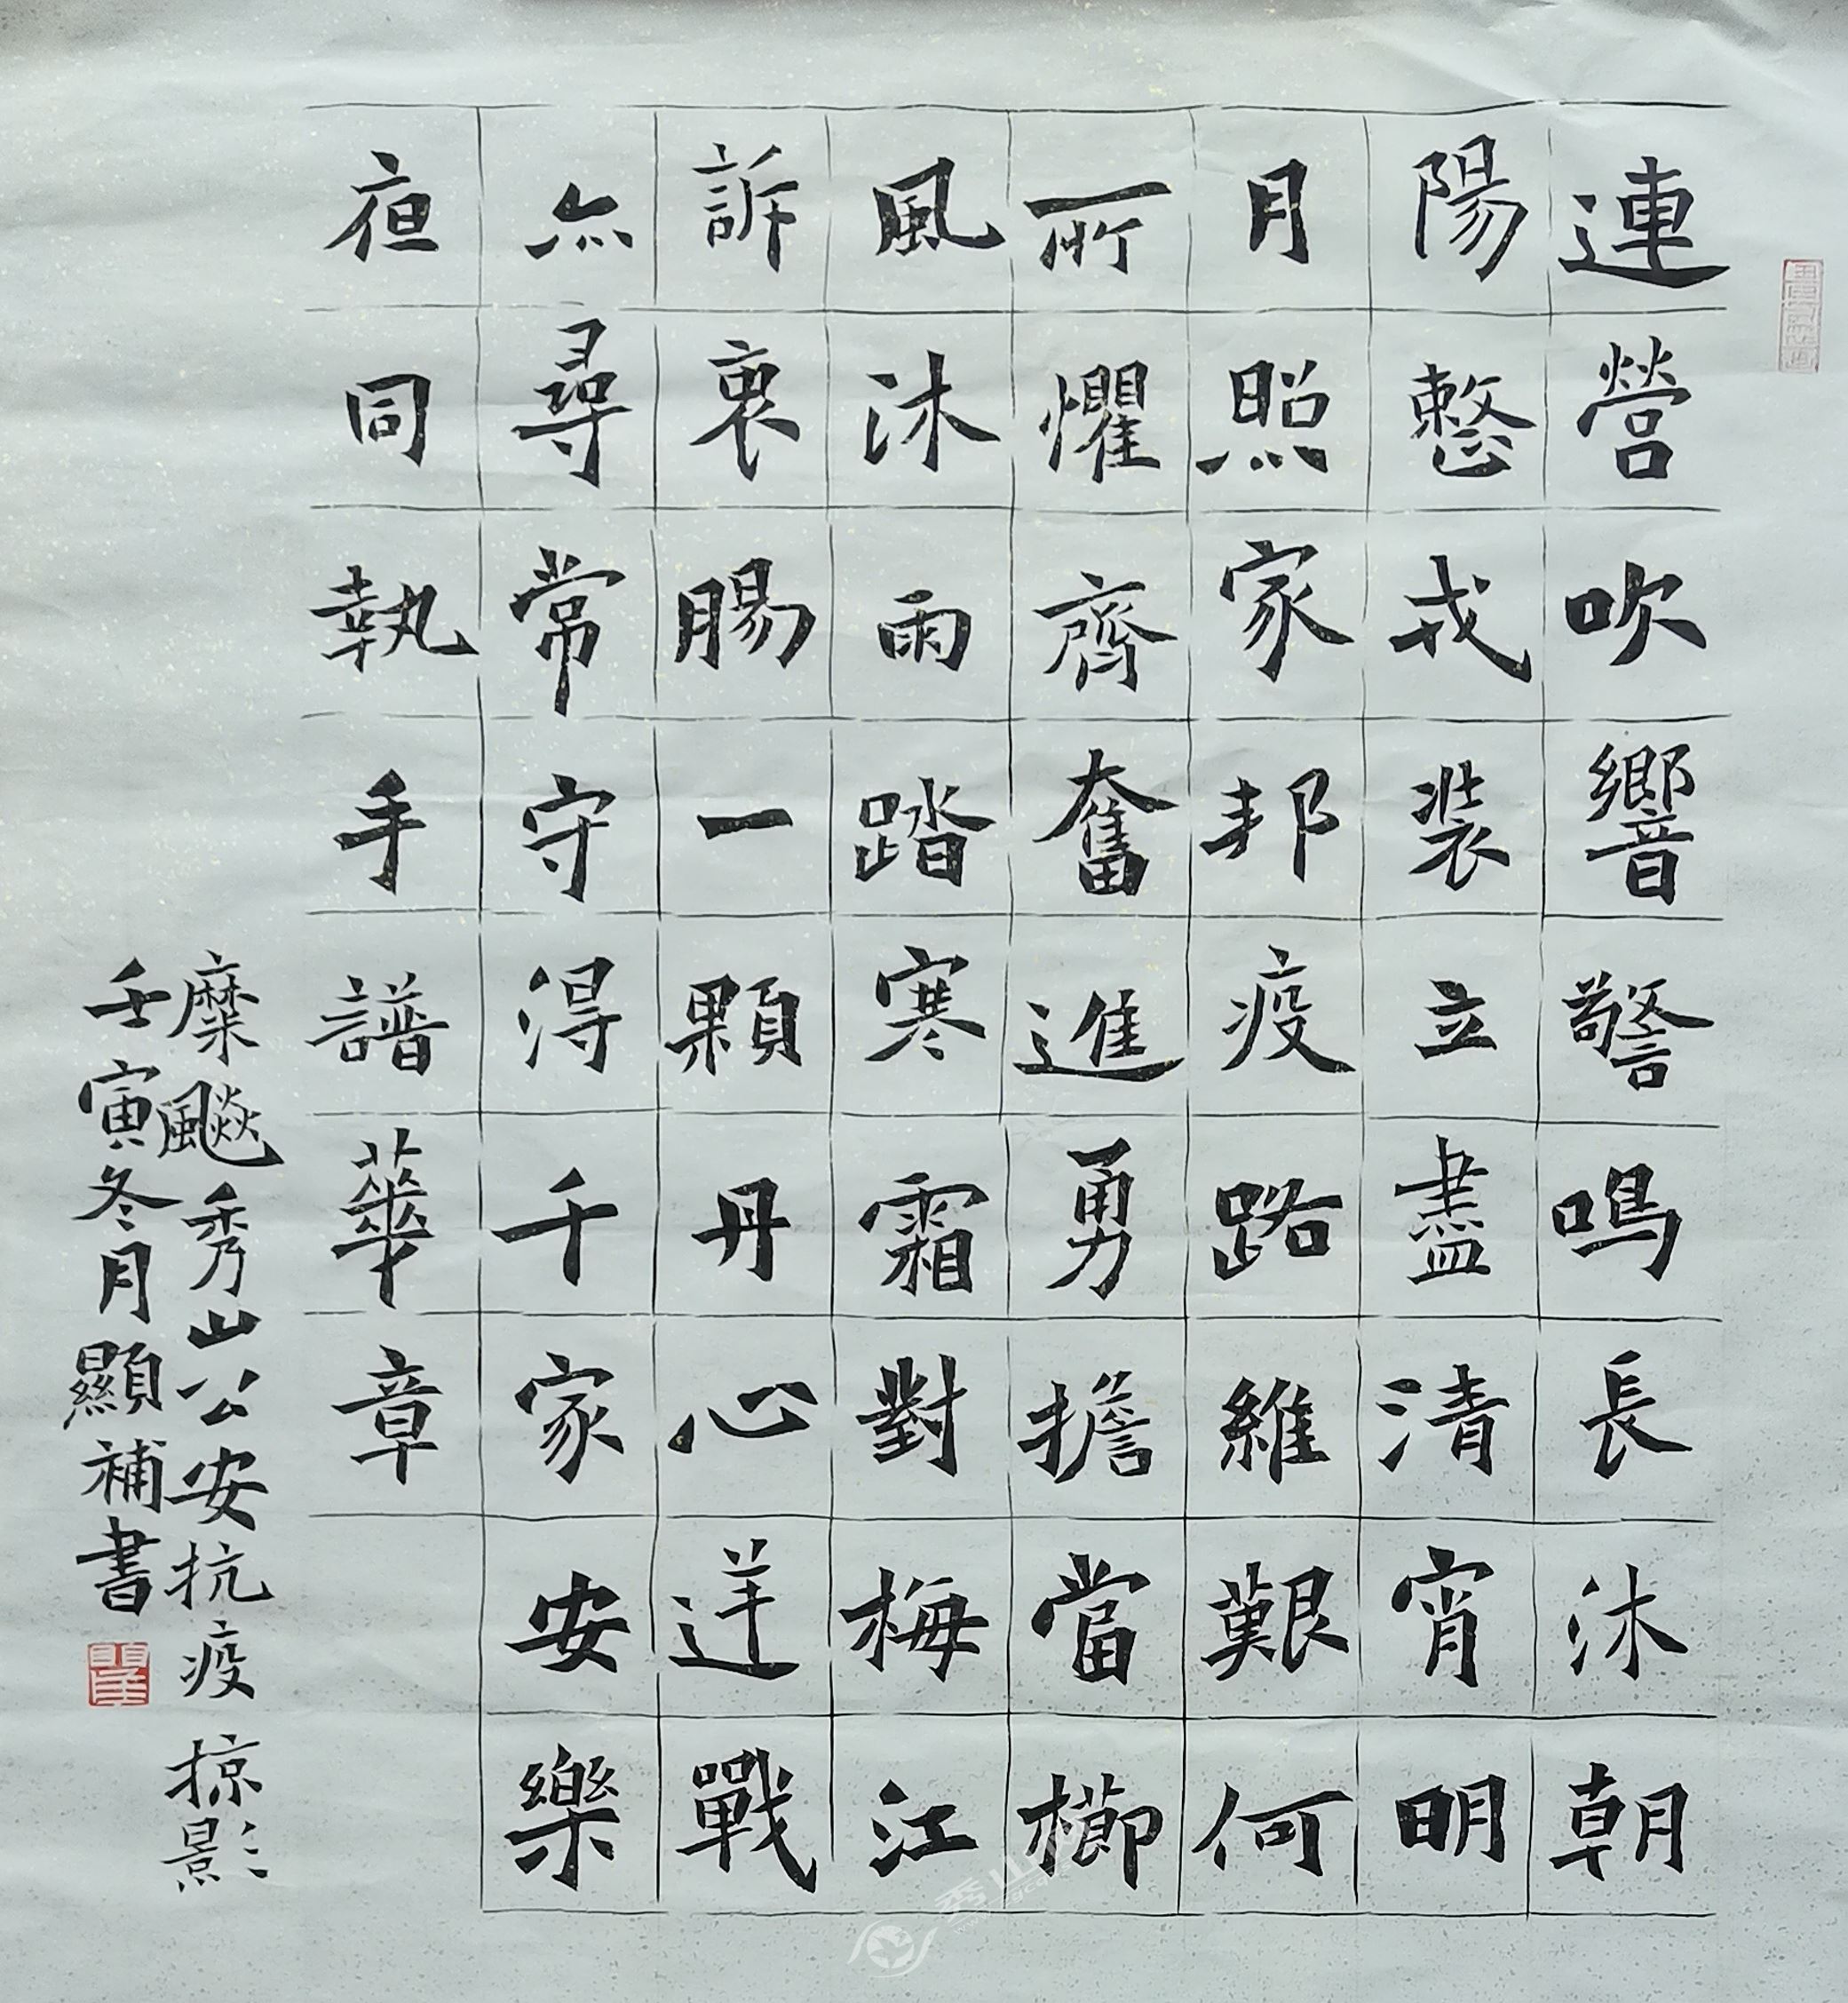 連營吹響警鳴長沐朝
陽整戎裝立盡清宵明
月照家邦疫路維艱何
所懼齊奮進勇擔當櫛
風沐雨踏寒霜對梅江
訴衷腸一顆丹心逆戰
亦尋常守得千家安樂
亱同執手譜華章
糜飈秀山公安抗疫掠影
壬寅冬月顯補書